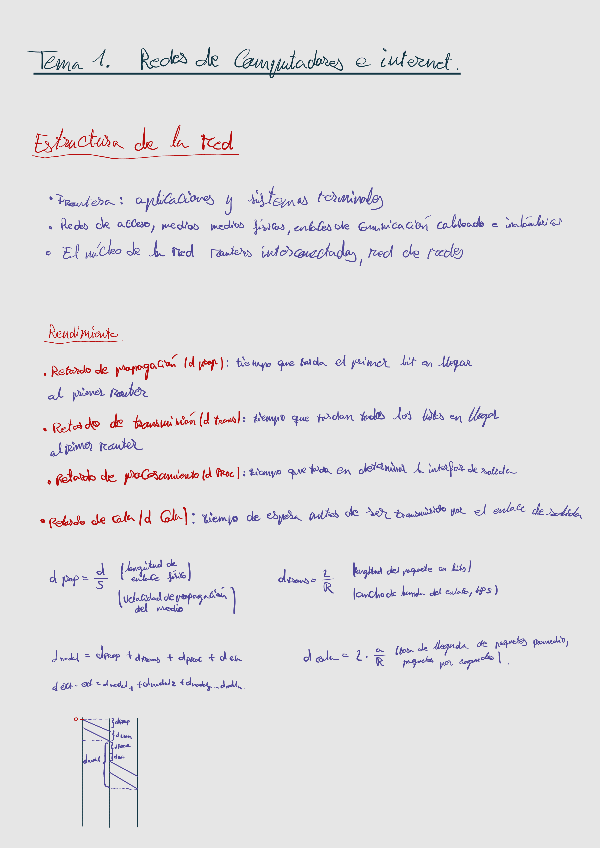 Tema 1. Redes de Computadores e internet.
Estructura de la red
• Frontera: aplicaciones y sistemas terminales
• Redes de acceso, medios medios físicos, enlaces de comunicación cableado e inalámbricas
• El núcleo de la red routers interconectados, red de redes
Rendimiento
• Retardo de propagación (d prop): tiempo que tarda el primer bit en llegar
al primer router
• Retardo de transmisión (d trans): tiempo que tardan todos los bits en llegar
al primer router
• Retardo de procesamiento (d proc): tiempo que tarda en determinar la interfaz de salida
• Retardo de cola (d Cola): tiempo de espera antes de ser transmitido por el enlace de salida
d prop = d/S (longitud de enlace físico) (Velocidad de propagación del medio)
dtrans = L/R (longitud del paquete en bits) (ancho de banda del enlace, bps)
dnodal = dprop + dtrans + dproc + dcola
d cola = L · a/R (tasa de llegada de paquetes promedio, paquetes por segundo).
dext-ext = dnodal1 + dnodal2 + dnodal3 ...
0
dprop
dtrans
dproc
dcola
dnodal